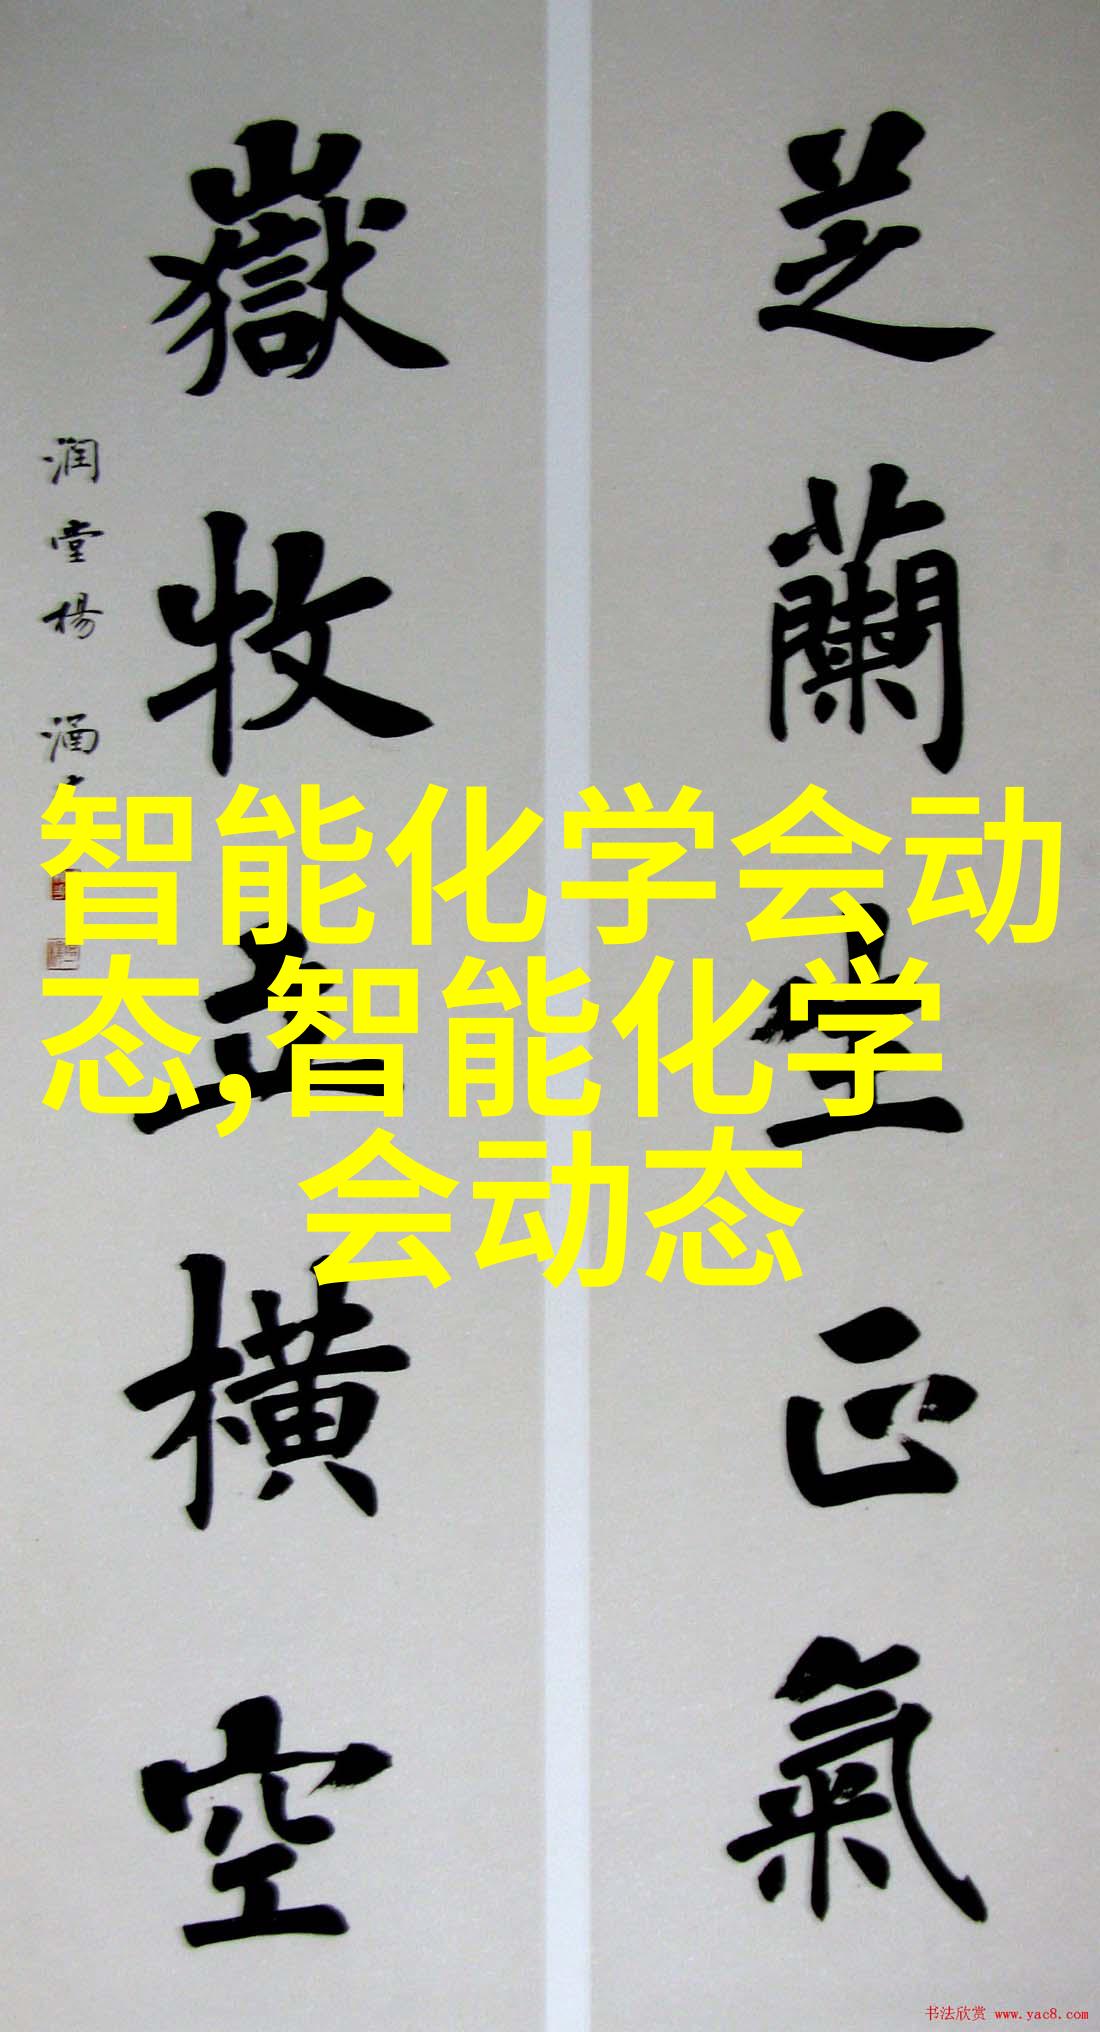 芝蘭生正氣
嶽牧立横空
润堂楊
智能化学会动
态,智能化学
会动态
书法欣赏 www.yac8.com